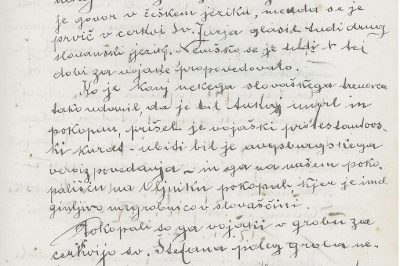 je govor v češkem jeziku, menda se je
prvič v cerkvi sv. Jurja glasil tudi drug
slovanski jezik. Nemško se je tudi v tej
dobi za vojake propovedovalo.
To je konj nekega slovaškega
tako udaril da je bil tukaj umrl in
pokopan, prišel je vojaški protestantovs-
ski kurat - ubiti bil je avgsburgškega
veroizpovedanja - in ga na našem poko-
pališču na pokopal, kjer je imel
ginljivo nagrobnico v slovaščini.
Pokopali so ga vojaki v grobu za
cerkvijo sv. Štefana poleg groba ne-